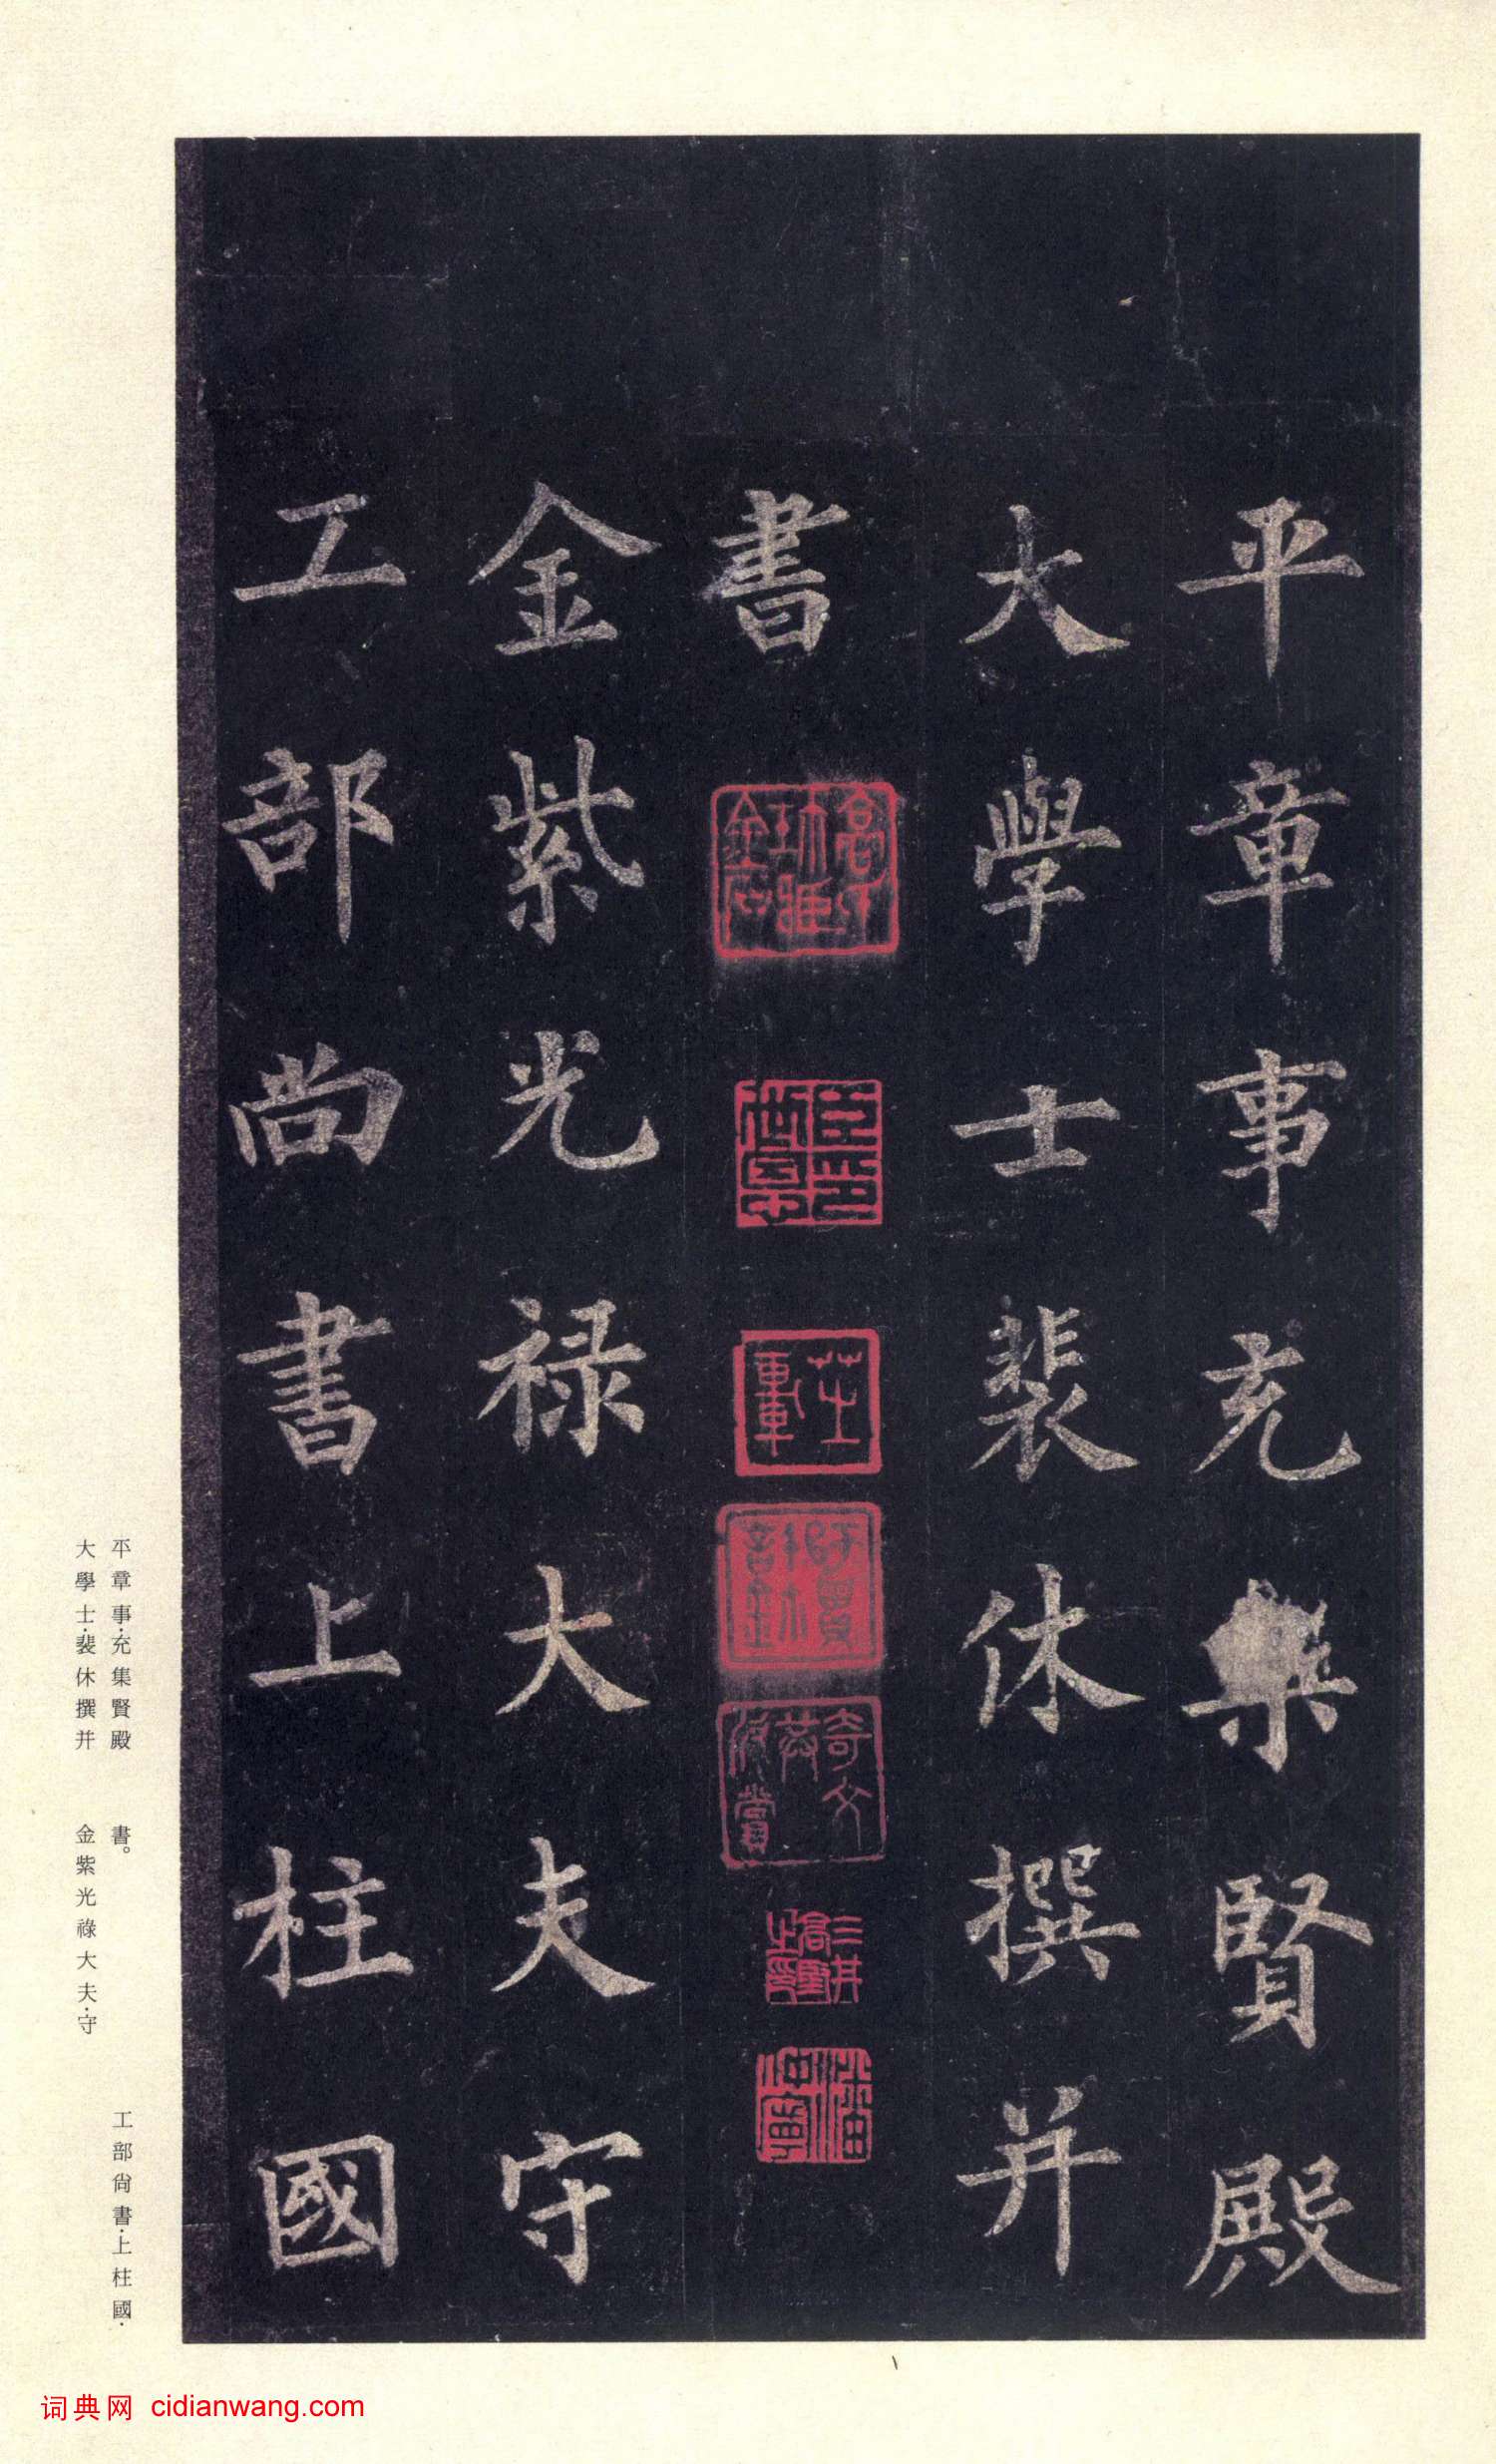 平章事充集賢殿
大學士裴休撰并
書
金紫光祿大夫守
工部尚書上柱國
三井
高堅
之印
平章事·充集賢殿
大學士·裴休撰并
書。
金紫光祿大夫·守
工部尙書·上柱國·
词典网 cidianwang.com